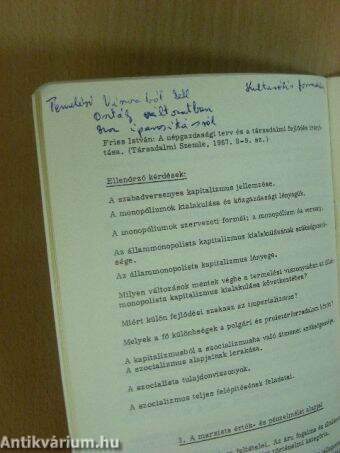 Termelési
ból kell
Friss István: A népgazdasági terv és a társadalmi fejlődés irányí-
tása. (Társadalmi Szemle, 1957. 8-9. sz.)
Ellenőrző kérdések:
A szabadversenyes kapitalizmus jellemzése.
A monopóliumok kialakulása és közgazdasági lényegük.
A monopóliumok szervezeti formái; a monopólium és verseny.
Az állammonopolista kapitalizmus kialakulásának szükségszerű-
sége.
Az állammonopolista kapitalizmus lényege.
Milyen változások mentek végbe a termelési viszonyokban az állam-
monopolista kapitalizmus kialakulása következtében?
Miért külön fejlődési szakasz az imperializmus?
Melyek a fő különbségek a polgári és proletárforradalom között?
A kapitalizmusból a szocializmusba való átmenet szükségessége.
A szocializmus alapjainak lerakása.
A szocialista tulajdonviszonyok.
A szocializmus teljes felépítésének feladatai.
3. A marxista érték- és pénzelmélet alapjai
feltételei. Az áru fogalma és
történelmi kategória.
Antikvárium.hu